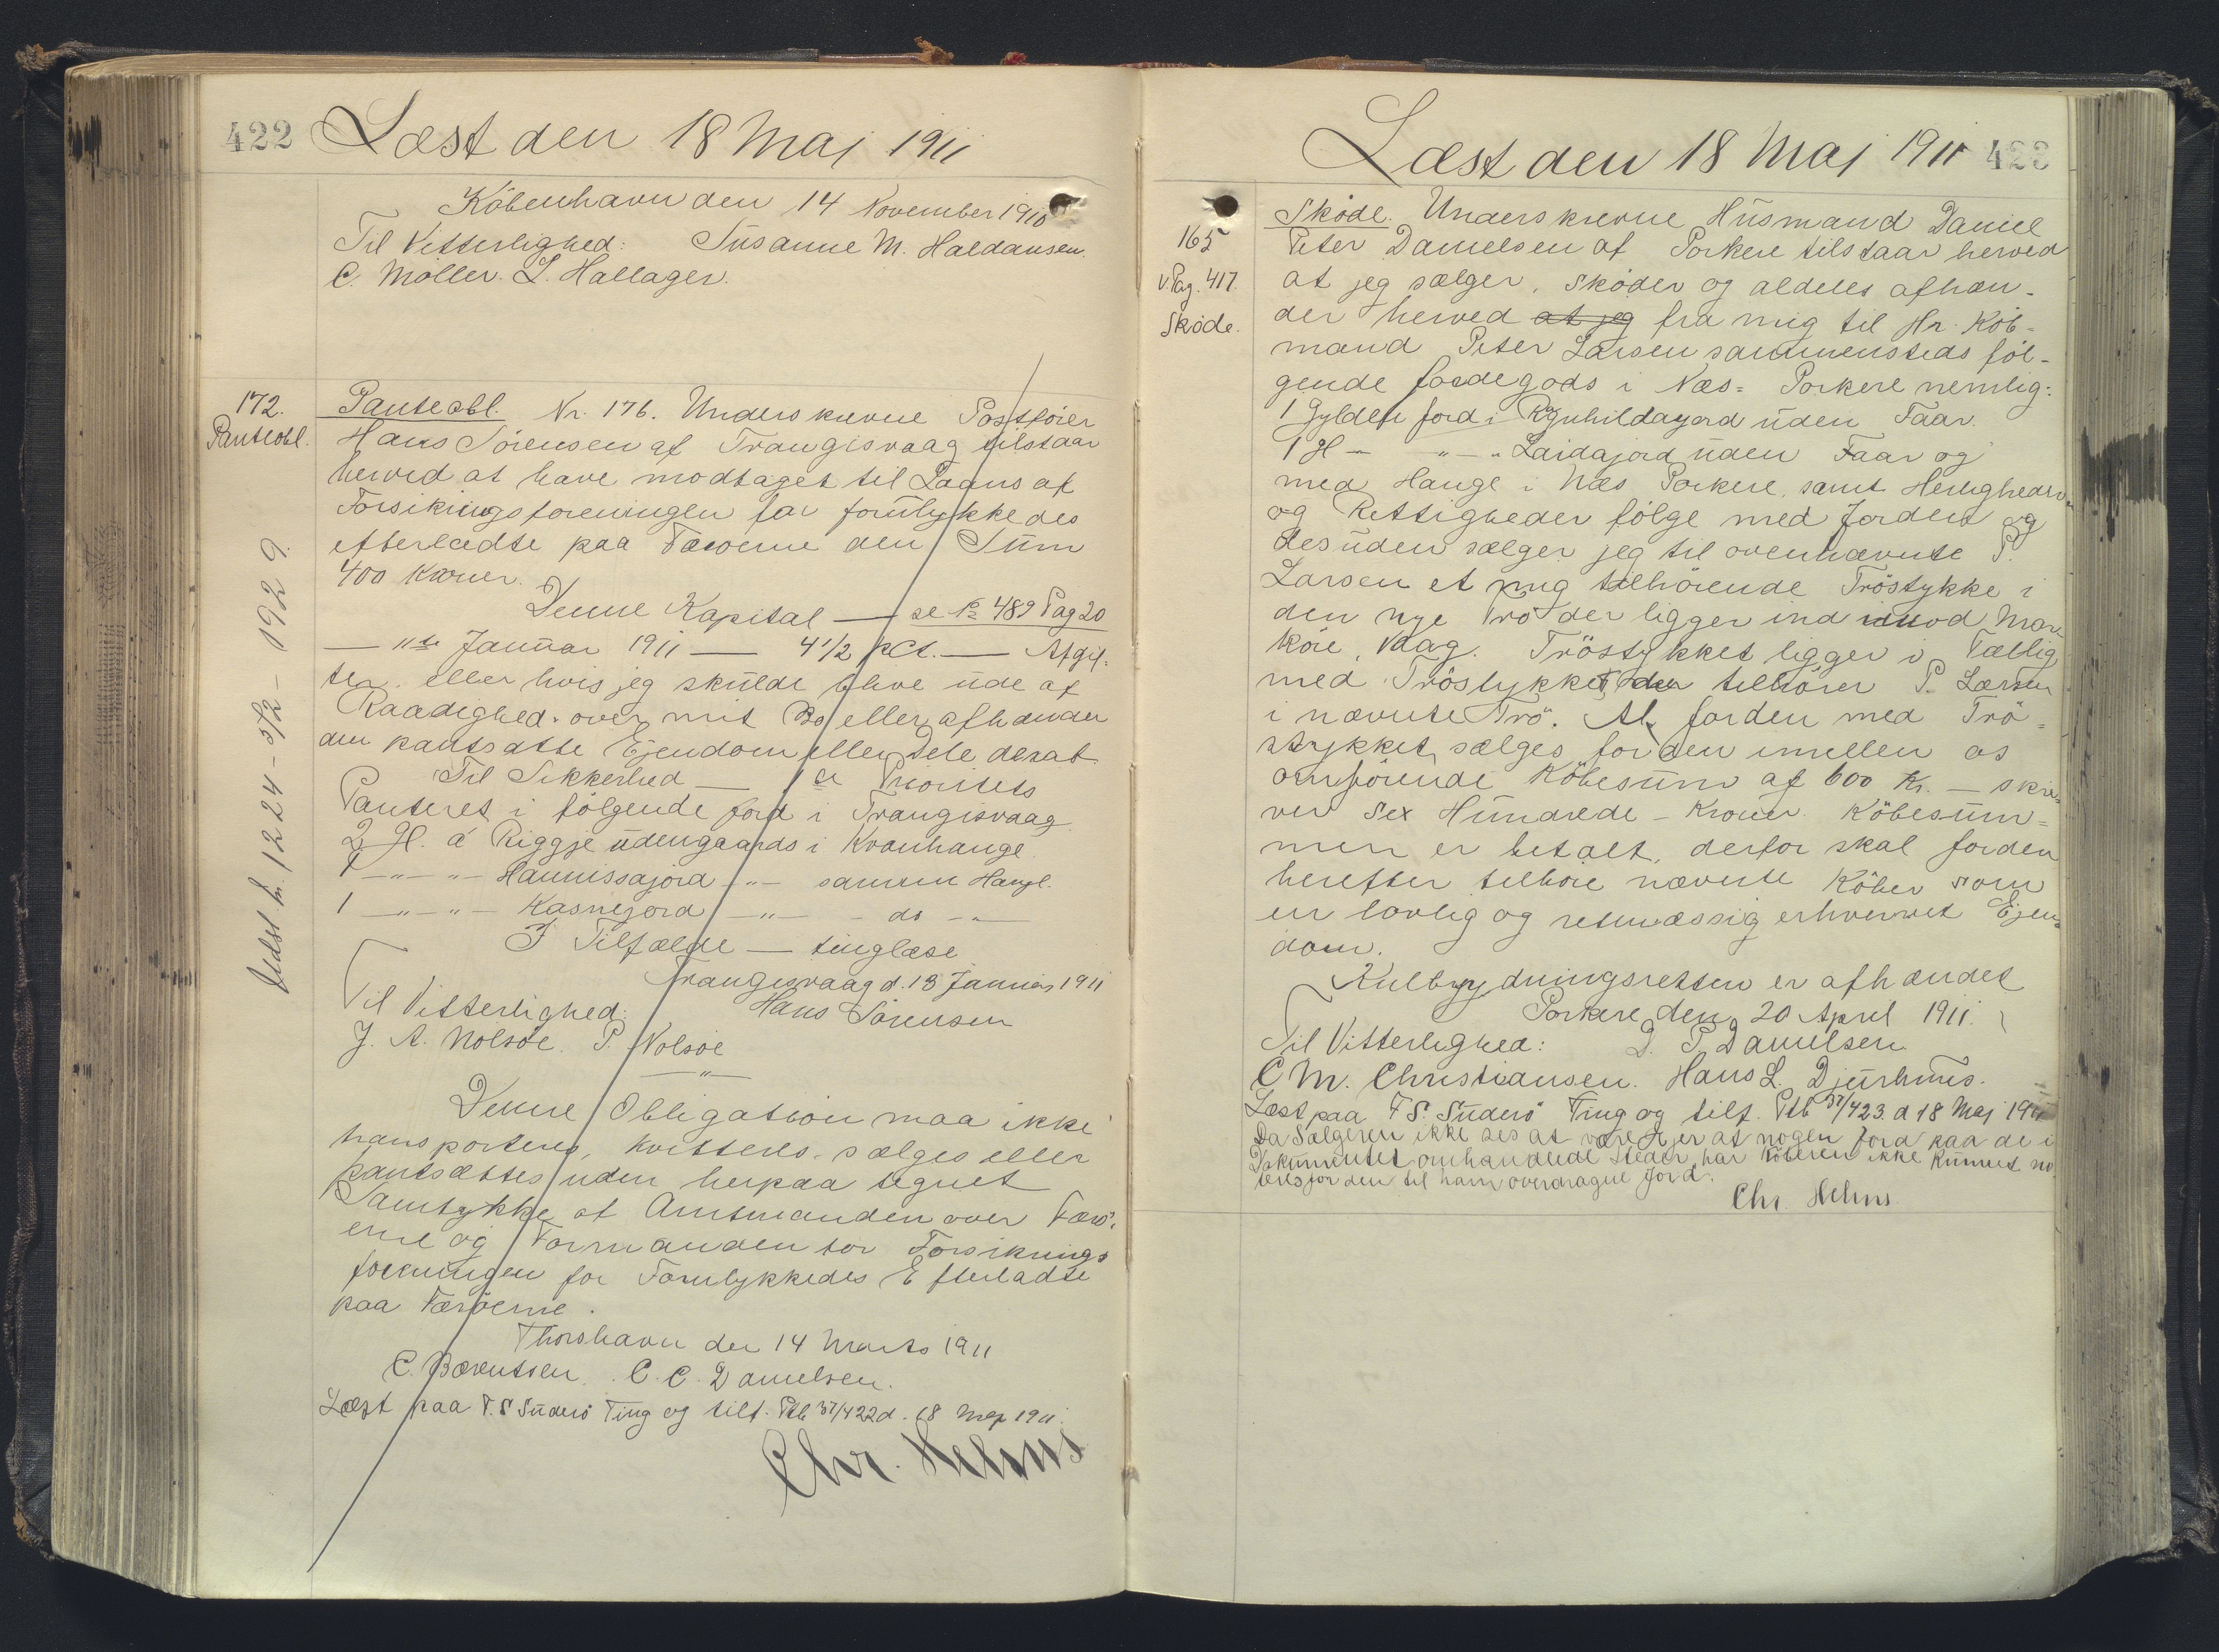 422 Læst den 18 Maj 1911
København den 14 November 1910
Til Vitterlighed: Susanne M. Haldansen.
C. Møller. L. Hallager.
172.
Panteobl.
Panteobl. Nr. 176. Underskrevne Postfører
Hans Sørensen af Trangisvaag tilstaar
herved at have modtaget til Laans af
Forsikringsforeningen for forulykkedes
efterladte paa Færøerne den Sum
400 Kroner.
Denne Kapital — se Pr. 489 Pag 20
— 11te Januar 1911 — 4 1/2 pCt. — Afgif-
ter. eller hvis jeg skulde blive ude af
Raadighed over mit Bo eller afhænder
den pantsatte Ejendom eller Dele deraf
Til Sikkerhed — 1ste Prioritets
Panteret i følgende Jord i Trangisvaag
2 G. á Riggje udengaards i Kvanhauge
1 —"—"— Hannissajord —"— samme Hauge.
1 —"—"— Kasnejord —"— - do -"-
I Tilfælde — tinglæse
Trangisvaag d. 13 Januar 1911
Til Vitterlighed: Hans Sørensen
J. A. Nolsøe. P. Nolsøe
—"—
Denne Obligation maa ikke
transporteres, kvitteres, sælges eller
pantsættes uden herpaa tegnet
Samtykke af Amtmanden over Færø-
erne og Formanden for Forsikrings
foreningen for Forulykkedes Efterladte
paa Færøerne.
Thorshavn den 14 Marts 1911
C. Bærentsen. C. C. Danielsen.
Læst paa F. S. Suderø Ting og tilf. Ptb 37/422 d. 18 Maj 1911.
Chr. Helms
Udsl. h. 1224 - 5/2 - 1929.
Læst den 18 Maj 1911 423
165
v. Pag. 417.
Skøde.
Skøde. Underskrevne Husmand Daniel
Peter Danielsen af Porkere tilstaar herved
at jeg sælger, skøder og aldeles afhæn-
der herved at jeg fra mig til Hr. Køb-
mand Peter Larsen sammensteds føl-
gende Jordegods i Næs-Porkere nemlig:
1 Gylden Jord i Rognhildajord uden Faar.
1 G — "—" Laidajord uden Faar og
med Hauge i Næs Porkere, samt Herligheder
og Rettigheder følge med Jorden og
desuden sælger jeg til ovennævnte P.
Larsen et mig tilhørende Trøstykke i
den nye Trø der ligger ind imod
Vaag. Trøstykket ligger i Fællig
med Trøstykket der tilhører P. Larsen
i nævnte Trø. Al Jorden med Trø-
stykket sælges for den imellem os
omførende Købesum af 600 Kr. — skri-
ver Sex Hundrede - Kroner. Købesum-
men er betalt, derfor skal Jorden
herefter tilhøre nævnte Køber som
en lovlig og retmæssig erhvervet Ejen-
dom.
Kulbrydningsretten er afhændet
Porkere den 20 April 1911.
Til Vitterlighed: D. P. Danielsen
C M. Christiansen. Hans L. Djurhuus.
Læst paa F S. Suderø Ting og tilf. Ptb 37/423 d 18 Maj 1911
Da Sælgeren ikke ses at være Ejer af nogen Jord paa de i
Dokumentet omhandlede Steder, har Køberen ikke kunnet no
teres for den til ham overdragne Jord.
Chr. Helms